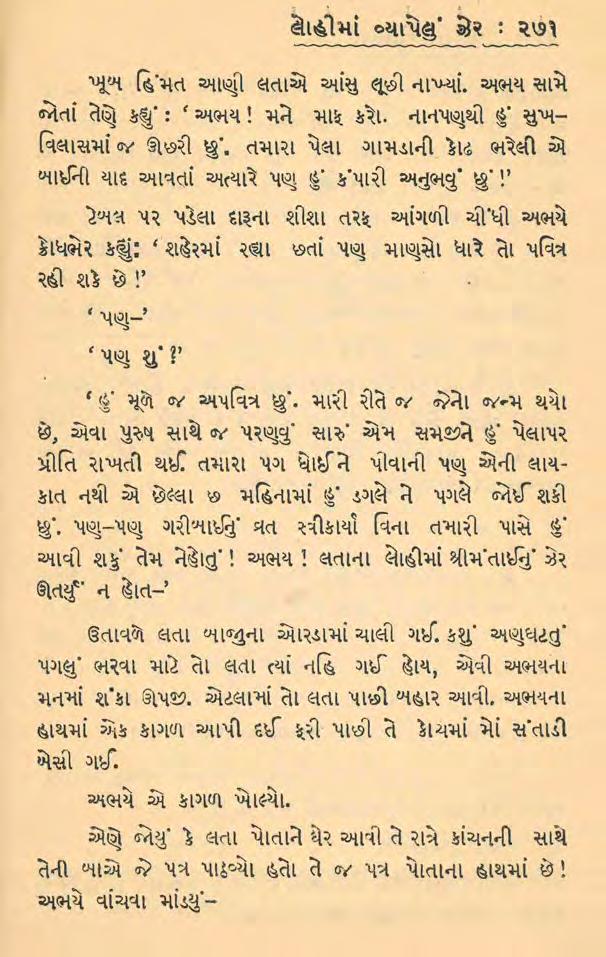 લોહીમાં વ્યાપેલું ઝેર : ૨૭૧
ખૂબ હિંમત આણી લતાએ આંસુ લૂછી નાખ્યાં. અભય સામે
જોતાં તેણે કહ્યું : ‘અભય! મને માફ કરો. નાનપણથી હું સુખ-
વિલાસમાં જ ઊછરી છું. તમારા પેલા ગામડાની કોઢ ભરેલી એ
બાઈની યાદ આવતાં અત્યારે પણ હું કંપારી અનુભવું છું!’
ટેબલ પર પડેલા દારૂના શીશા તરફ આંગળી ચીંધી અભયે
ક્રોધભેર કહ્યું: ‘શહેરમાં રહ્યા છતાં પણ માણસો ધારે તો પવિત્ર
રહી શકે છે!’
‘પણ–’
‘પણ શું?’
‘હું મૂળે જ અપવિત્ર છું. મારી રીતે જ જેનો જન્મ થયો
છે, એવા પુરુષ સાથે જ પરણવું સારું એમ સમજીને હું પેલાપર
પ્રીતિ રાખતી થઈ. તમારા પગ ધોઈને પીવાની પણ એની લાય-
કાત નથી એ છેલ્લા છ મહિનામાં હું ડગલે ને પગલે જોઈ શકી
છું. પણ–પણ ગરીબાઈનું વ્રત સ્ત્રીકાર્યા વિના તમારી પાસે હું
આવી શકું તેમ નહોતું! અભય! લતાના લોહીમાં શ્રીમંતાઈનું ઝેર
ઊતર્યું ન હોત–’
ઉતાવળે લતા બાજુના ઓરડામાં ચાલી ગઈ. કશું અણઘટતું
પગલું ભરવા માટે તો લતા ત્યાં નહિ ગઈ હોય, એવી અભયના
મનમાં શંકા ઊપજી. એટલામાં તો લતા પાછી બહાર આવી. અભયના
હાથમાં એક કાગળ આપી દઈ ફરી પાછી તે કોચમાં મોં સંતાડી
બેસી ગઈ.
અભયે એ કાગળ ખોલ્યો.
એણે જોયું કે લતા પોતાને ઘેર આવી તે રાત્રે કાંચનની સાથે
તેની બાએ જે પત્ર પાઠવ્યો હતો તે જ પત્ર પોતાના હાથમાં છે!
અભયે વાંચવા માંડયું–